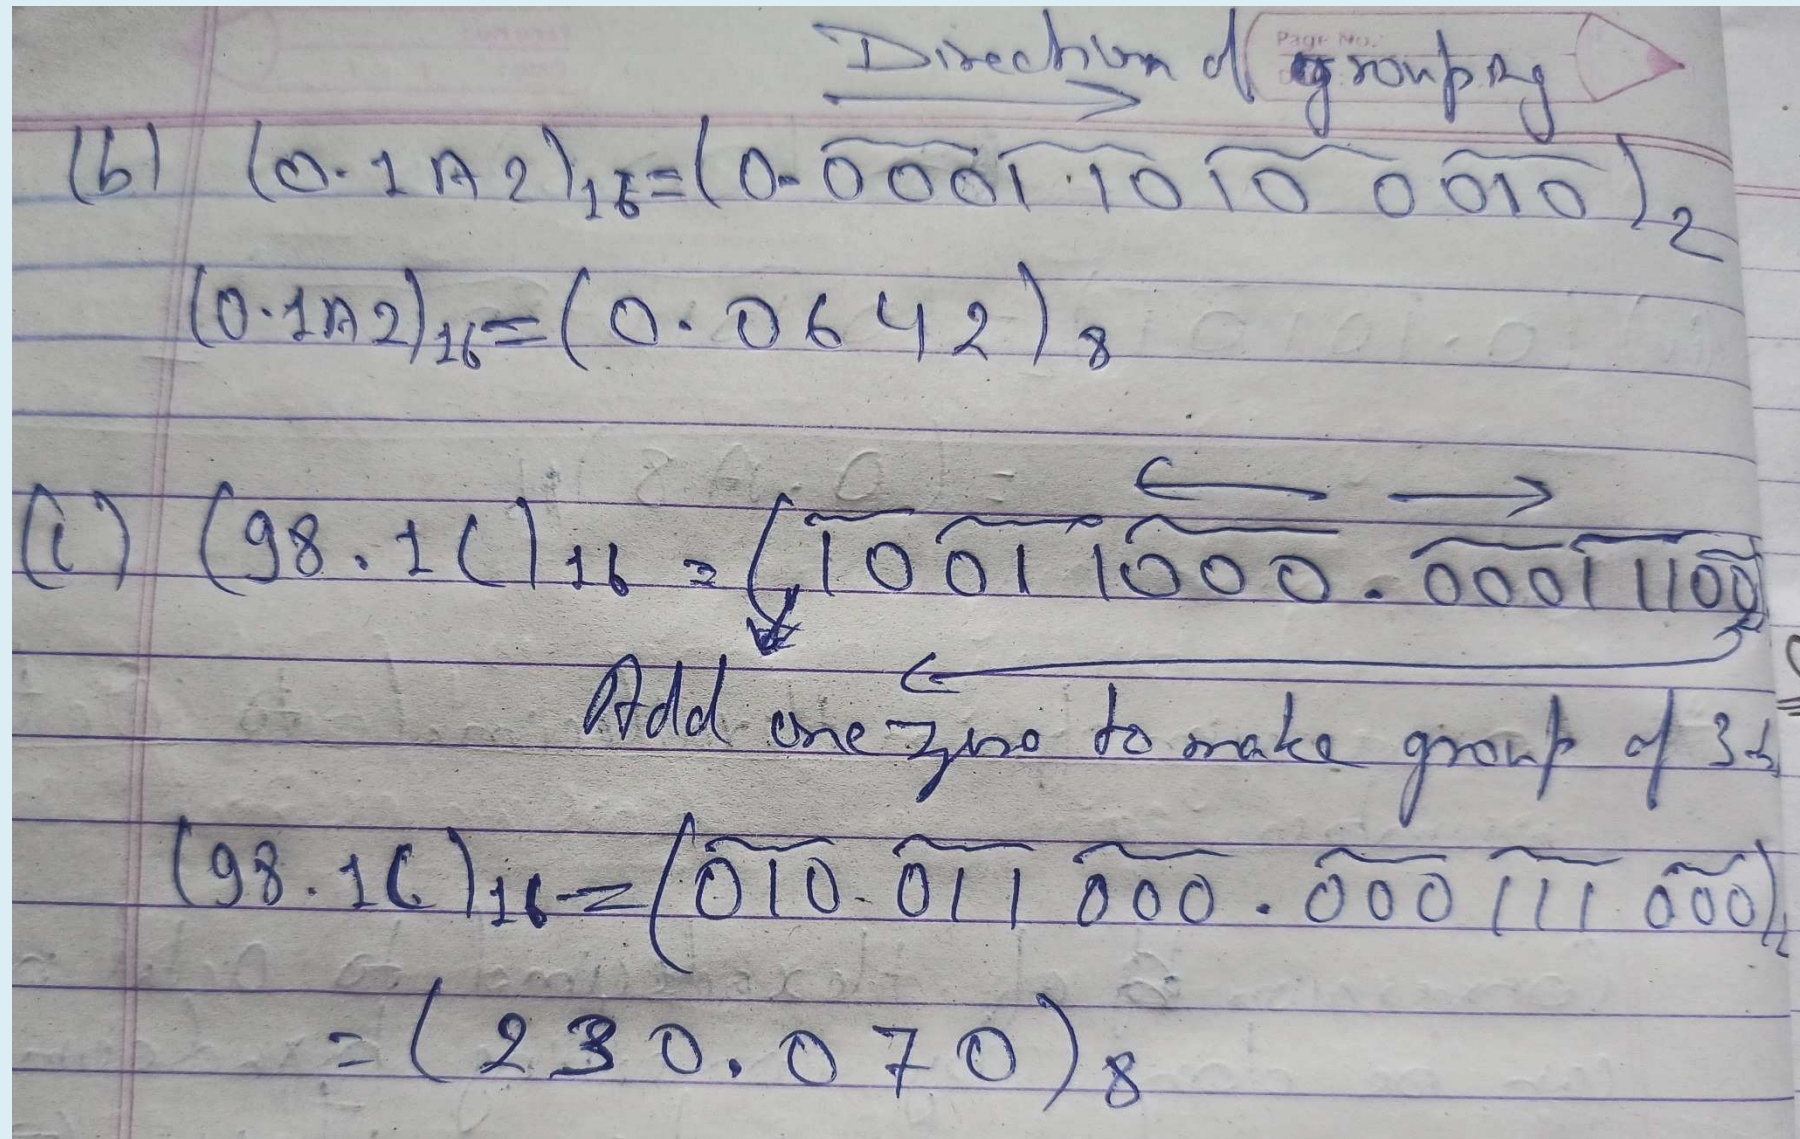 Page No.
Direction of grouping
(b) (0.1A2)₁₆=(0.0001 1010 0010)₂
(0.1A2)₁₆=(0.0642)₈
(c) (98.1C)₁₆ = (1001 1000.00011100
Add one zero to make group of 3
(98.1C)₁₆=(010 011 000.000 111 000)₂
=(230.070)₈